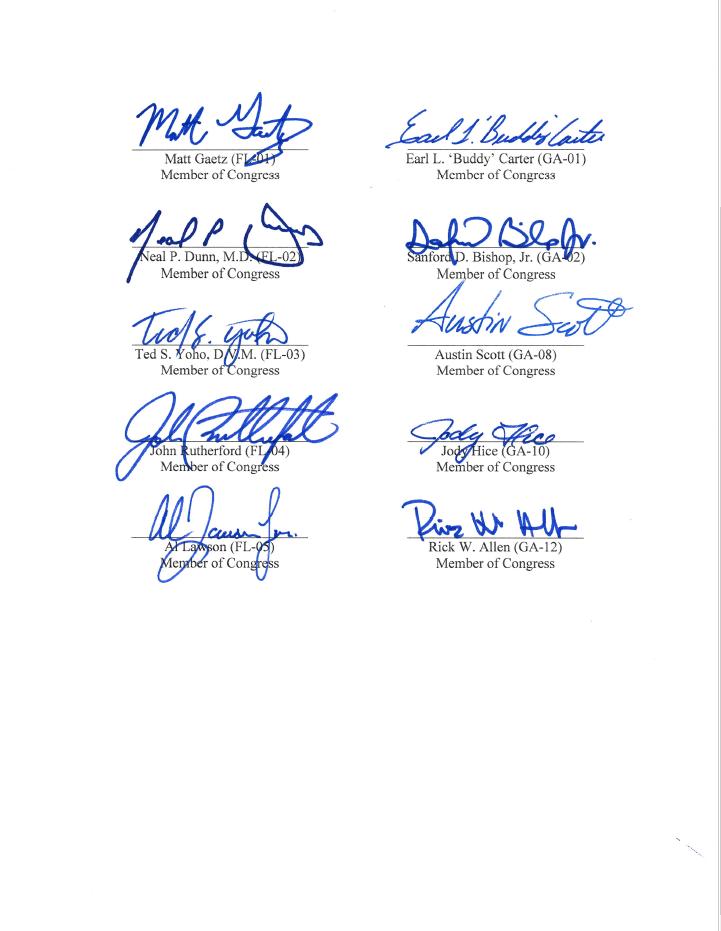 Matt Gaetz
Matt Gaetz (FL-01)
Member of Congress
Earl L. 'Buddy' Carter
Earl L. ‘Buddy’ Carter (GA-01)
Member of Congress
Neal P Dunn
Neal P. Dunn, M.D. (FL-02)
Member of Congress
Sanford D. Bishop, Jr. (GA-02)
Member of Congress
Ted S. Yoho
Ted S. Yoho, D.V.M. (FL-03)
Member of Congress
Austin Scott
Austin Scott (GA-08)
Member of Congress
John Rutherford
John Rutherford (FL-04)
Member of Congress
Jody Hice
Jody Hice (GA-10)
Member of Congress
Al Lawson Jr.
Al Lawson (FL-05)
Member of Congress
Rick W. Allen
Rick W. Allen (GA-12)
Member of Congress